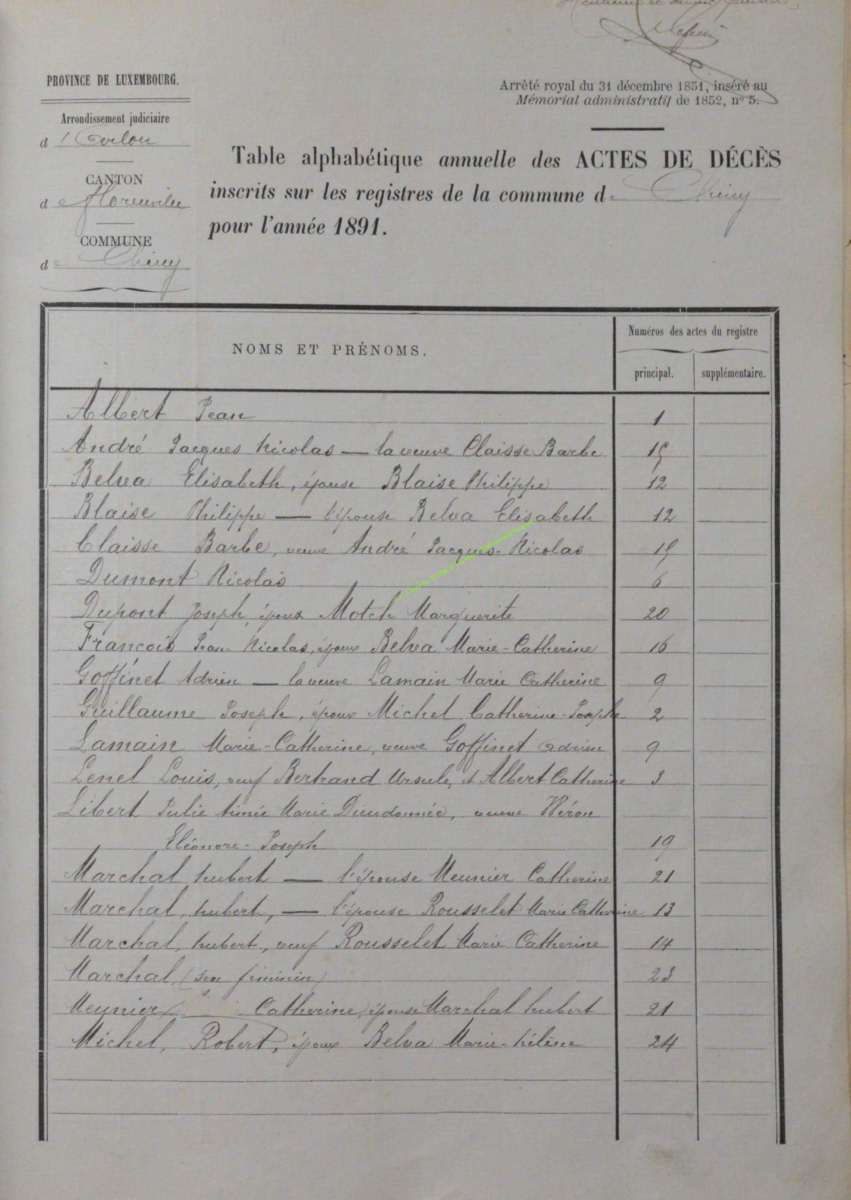 PROVINCE DE LUXEMBOURG.
Arrondissement judiciaire
d'Arlon
CANTON
de Florenville
COMMUNE
de Chiny
Arrêté royal du 31 décembre 1851, inséré au
Mémorial administratif de 1852, nº 5.
Table alphabétique annuelle des ACTES DE DÉCÈS
inscrits sur les registres de la commune de Chiny
pour l'année 1891.
NOMS ET PRÉNOMS.
Numéros des actes du registre
principal. supplémentaire.
Albert Jean 1
André Jacques Nicolas — la veuve Claisse Barbe
Belva Elisabeth, épouse Blaise Philippe 12
Blaise Philippe — l'épouse Belva Elisabeth 12
Claisse Barbe, veuve André Jacques-Nicolas
Dumont Nicolas 6
Dupont Joseph, époux Motch Marguerite 20
François Jean Nicolas, époux Belva Marie-Catherine 16
Goffinet Adrien — la veuve Lamain Marie Catherine 9
Guillaume Joseph, époux Michel Catherine-Josèphe 2
Lamain Marie-Catherine, veuve Goffinet Adrien 9
Lenel Louis, veuf Bertrand Ursule, et Albert Catherine 3
Libert Julie Aimée Marie Dieudonnée, veuve Héron
Eléonore-Joseph 19
Marchal hubert — l'épouse Meunier Catherine 21
Marchal, hubert, — l'épouse Rousselet Marie Catherine 13
Marchal, hubert, veuf Rousselet Marie Catherine 14
Marchal, (sexe féminin) 23
Meunier Catherine, épouse Marchal hubert 21
Michel, Robert, époux Belva Marie-hélène 24